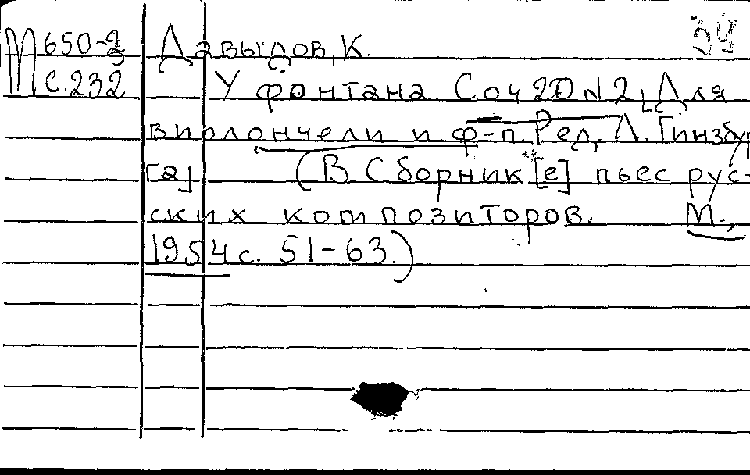 34
М 650-2 Давыдов, К.
с.232 У фонтана Соч 20 N 2, Для
виолончели и ф-п Ред. Л. Гинзбур
[а] (В Сборник[е] пьес рус-
ских композиторов. М.,
1954 с. 51-63.)